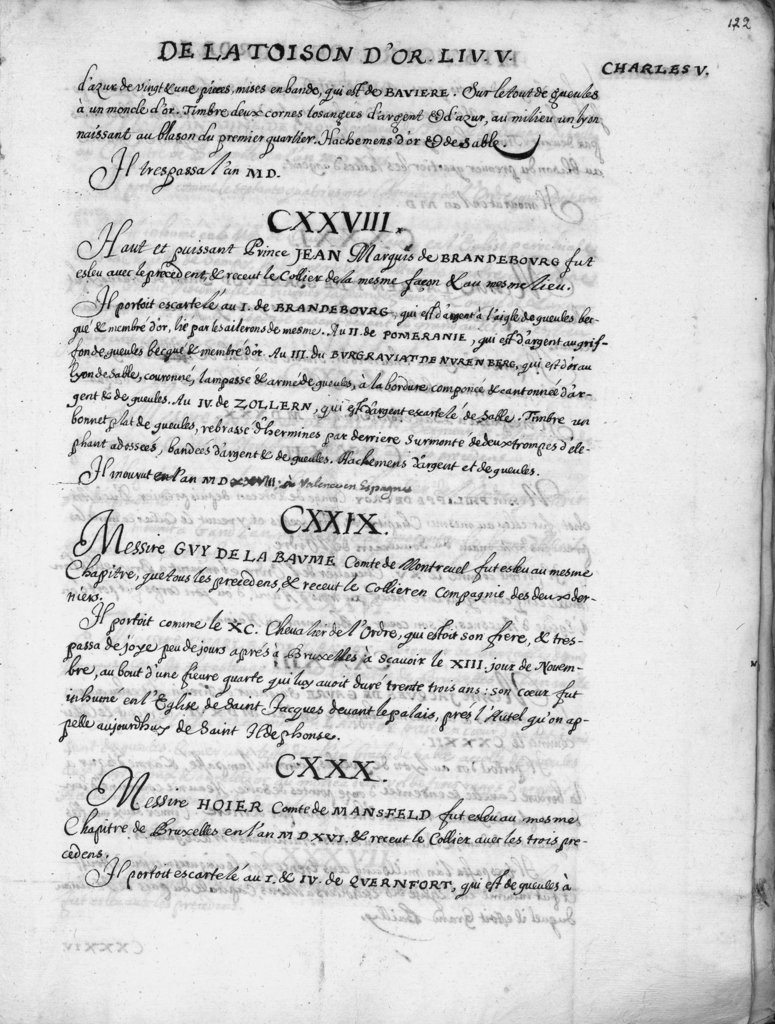 122
DE LA TOISON D'OR. LIV. V.
CHARLES V.
d'azur de vingt & une pieces, mises en bande, qui est de BAVIERE. Sur le tout de gueules
à un monde d'or. Timbre deux cornes losangees d'argent & d'azur, au milieu un lyon
naissant au blason du premier quartier. Hachemens d'or & de sable.
Il trespassa l'an MD.
CXXVIII.
Haut et puissant Prince JEAN Marquis de BRANDEBOURG fut
esleu avec le precedent, & receut le Collier de la mesme façon & au mesme lieu.
Il portoit escartelé au I. de BRANDEBOURG, qui est d'argent à l'aigle de gueules bec-
qué & membré d'or, lié par les ailerons de mesme. Au II. de POMERANIE, qui est d'argent au grif-
fon de gueules becqué & membré d'or. Au III. du BURGRAVIAT DE NURENBERG, qui est d'or au
lyon de sable, couronné, lampassé & armé de gueules, à la bordure componée & cantonnée d'ar-
gent & de gueules. Au IV. de ZOLLERN, qui est d'argent escartelé de sable. Timbre un
bonnet plat de gueules, rebrassé d'hermines par derriere surmonté de deux trompes d'ele-
phant adossées, bandées d'argent & de gueules. Hachemens d'argent et de gueules.
Il mourut en l'an MDXXVIII. à Valence en Espagne
CXXIX.
Messire GUY DE LA BAUME Comte de Montrevel fut esleu au mesme
Chapitre, que tous les precedens, & receut le Collier en Compagnie des deux der-
niers.
Il portoit comme le XC. Chevalier de l'Ordre, qui estoit son frere, & tres-
passa de joye peu de jours aprés à Bruxelles à scavoir le XIII. jour de Novem-
bre, au bout d'une fieure quarte qui luy avoit duré trente trois ans: son cœur fut
inhumé en l'Eglise de Saint Jacques devant le palais, prés l'Autel qu'on ap-
pelle aujourdhuy de Saint Ildephonse.
CXXX.
Messire HOIER Comte de MANSFELD fut esleu au mesme
Chapitre de Bruxelles en l'an MDXVI. & receut le Collier avec les trois pre-
cedens.
Il portoit escartelé au I. & IV. de QUERNFORT, qui est de gueules à